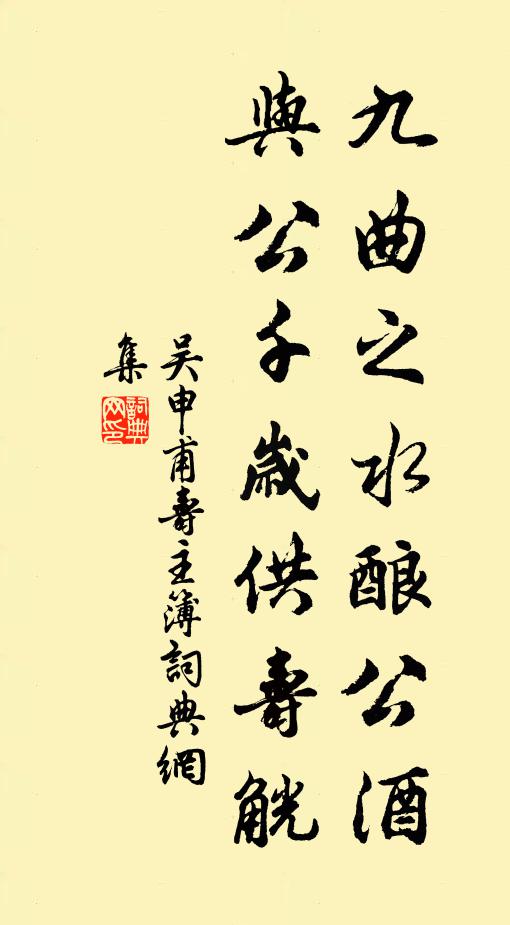 九曲之水酿公酒
與公千歲供壽觥
吴申甫壽主簿詞典網
集
詞典網印